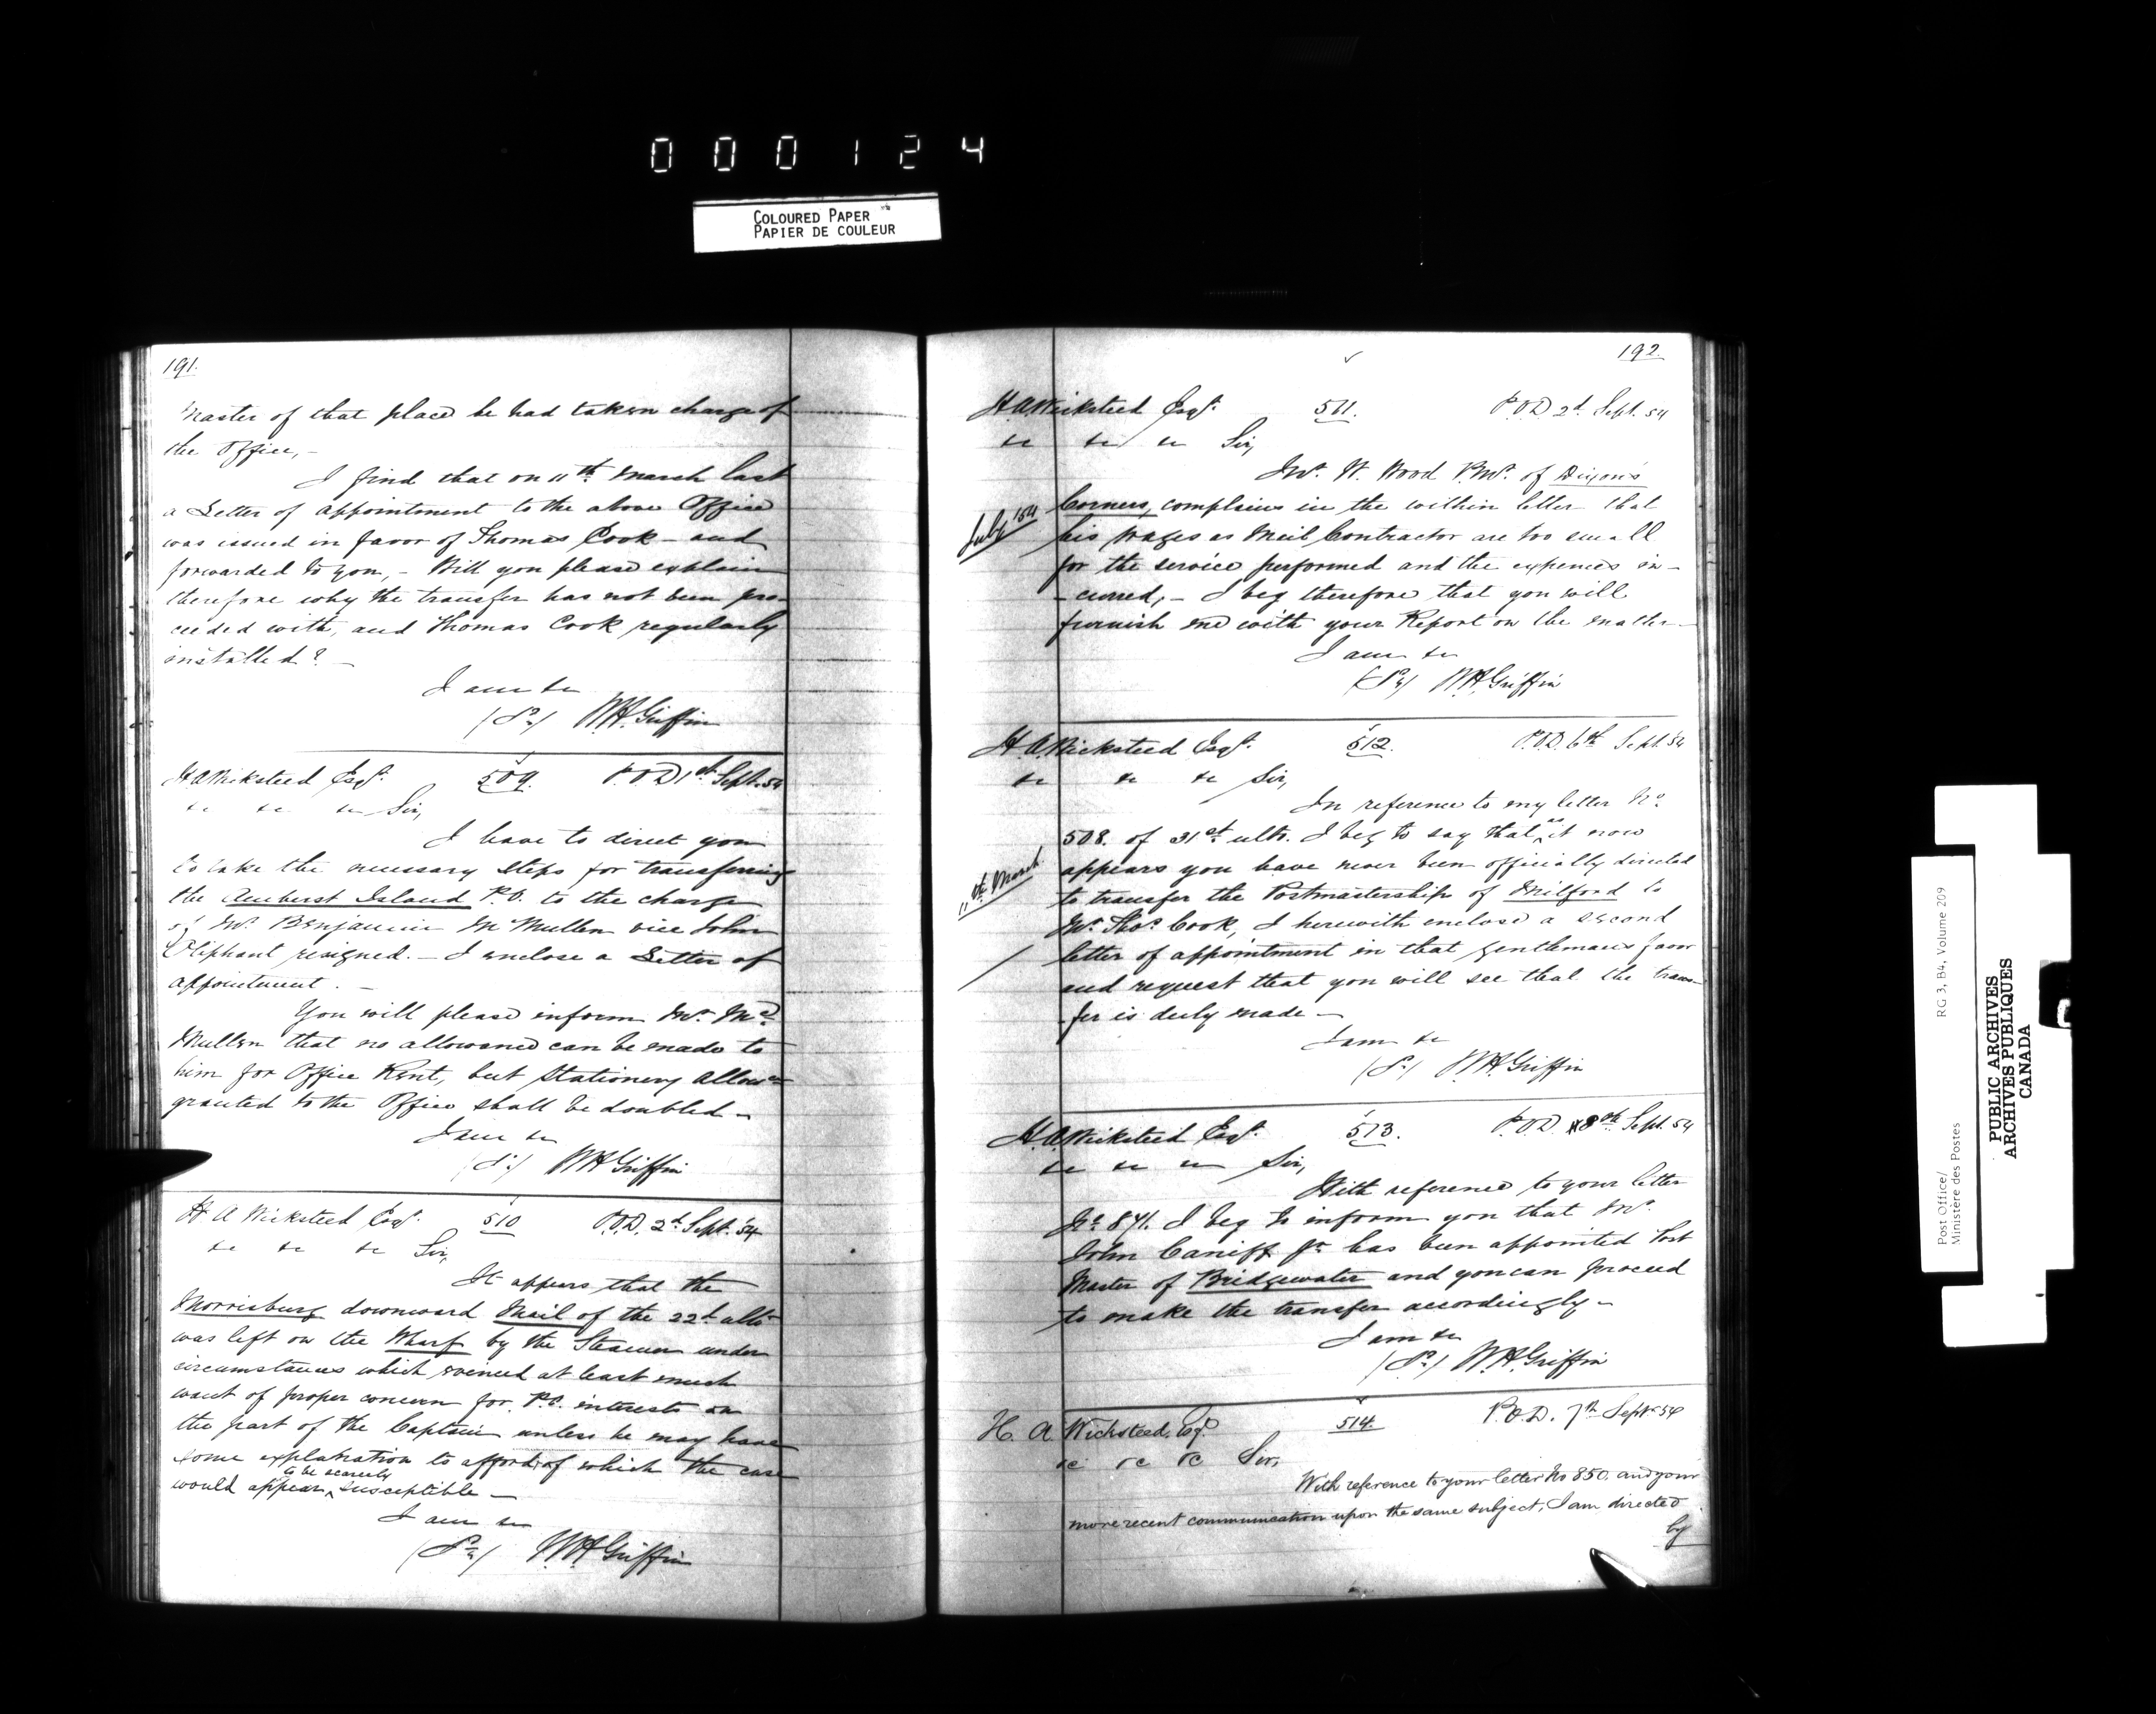 000124
COLOURED PAPER
PAPIER DE COULEUR
191.
Master of that place he had taken charge of
the Office,–
I find that on 11th March last
a Letter of appointment to the above Office
was issued in favor of Thomas Cook – and
forwarded to you, – Will you please explain
therefore why the transfer has not been pro-
ceeded with, and Thomas Cook regularly
installed? –
I am &c
(Sd) W.H. Griffin
H A Wicksteed Esqr. 509. P.O.D 1st Sept. 54
&c &c &c Sir,
I have to direct you
to take the necessary steps for transferring
the Amherst Island P.O. to the charge
of Mr. Benjamin McMullen vice John
Oliphant resigned. – I enclose a Letter of
appointment. –
You will please inform Mr. Mc
Mullen that no allowance can be made to
him for Office Rent, but Stationery allowce
granted to the Office shall be doubled –
I am &c
(Sd) W H Griffin
H A Wicksteed Esqr. 510 P.O.D. 2d Sept. 54
&c &c &c Sir,
It appears that the
Morrisburg downward Mail of the 22d ulto
was left on the Wharf by the Steamer under
circumstances which evinced at least much
want of proper concern for P.O. interests on
the part of the Captain unless he may have
some explanation to afford of which the case
to be scarcely
would appear ^ susceptible –
I am &c
(Sd) W.H. Griffin
192.
H.A Wicksteed Esqr. 511. P.O.D 2d. Sept. 54
&c &c &c Sir,
Mr. W. Wood P.Mr. of Dixon's
July '54
Corners, complains in the within letter that
his wages as Mail Contractor are too small
for the service performed and the expences in-
-curred, – I beg therefore that you will
furnish me with your Report on the matter –
I am &c
(Sd) W.H. Griffin
H. A. Wicksteed Esqr. 512. P.O.D. 6th Sept. 54
&c &c &c Sir,
In reference to my letter No.
508. of 31st ulto. I beg to say that ^as it now
11th March
appears you have never been officially directed
to transfer the Postmastership of Milford to
Mr. Thos. Cook, I herewith enclose a second
letter of appointment in that gentleman's favor
and request that you will see that the trans-
-fer is duly made –
I am &c
(Sd) W.H. Griffin
H.A. Wicksteed Esqr. 513. P.O.D. 8th Sept. 54
&c &c &c Sir,
With reference to your letter
No. 841. I beg to inform you that Mr.
John Caniff Jr has been appointed Post
Master of Bridgewater and you can proceed
to make the transfer accordingly –
I am &c
(Sd) W.H. Griffin
H. A. Wicksteed, Esq. 514. P.O.D. 7th Septr 54
&c &c &c Sir,
With reference to your letter No 850, and your
more recent communication upon the same subject, I am directed
by
Post Office/
Ministère des Postes
RG 3, B4, Volume 209
PUBLIC ARCHIVES
ARCHIVES PUBLIQUES
CANADA